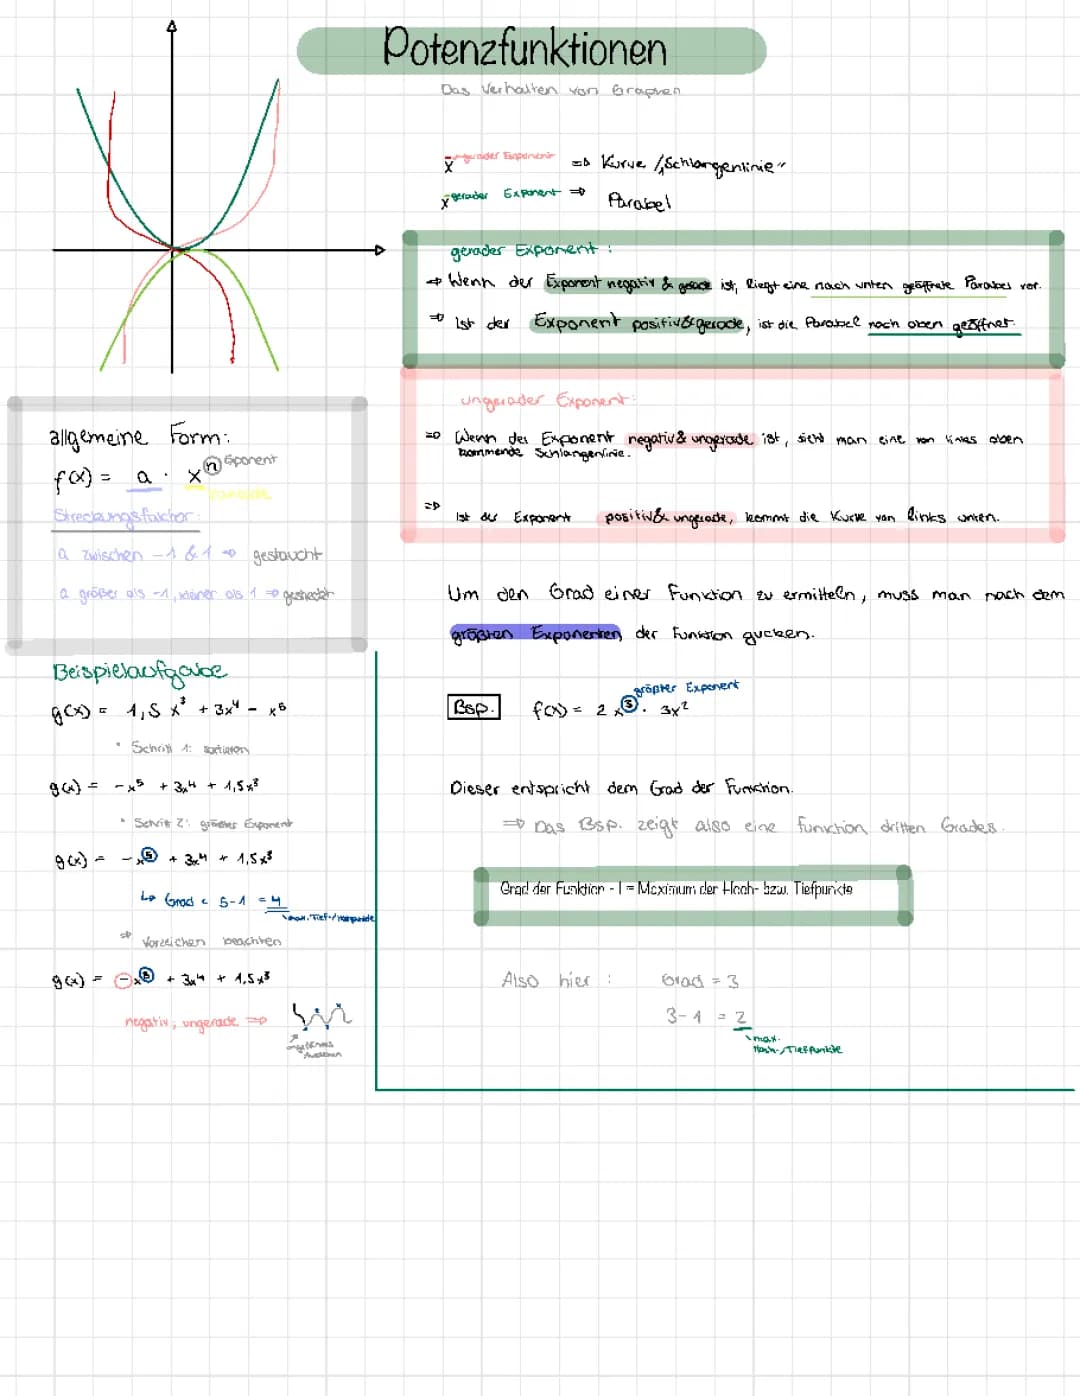 Potenzfunktionen
Das Verhalten von Graphen
x ungerader Exponent => Kurve /„Schlangenlinie"
x gerader Exponent => Parabel
gerader Exponent :
=> Wenn der Exponent negativ & gerade ist, liegt eine nach unten geöffnete Parabel vor.
=> Ist der Exponent positiv & gerade, ist die Parabel nach oben geöffnet.
ungerader Exponent:
=> Wenn der Exponent negativ & ungerade ist, sieht man eine von links oben
kommende Schlangenlinie.
=> Ist der Exponent positiv & ungerade, kommt die Kurve von links unten.
allgemeine Form:
f(x) = a · x^n Exponent
Streckungsfaktor:
a zwischen -1 & 1 => gestaucht
a größer als -1, kleiner als 1 => gestreckt
Um den Grad einer Funktion zu ermitteln, muss man nach dem
größten Exponenten der Funktion gucken.
Bsp. f(x) = 2x^3 · 3x^2
größter Exponent
Dieser entspricht dem Grad der Funktion.
=> Das Bsp. zeigt also eine Funktion dritten Grades.
Grad der Funktion - 1 = Maximum der Hoch- bzw. Tiefpunkte
Also hier : Grad = 3
3-1 = 2
max.
Hoch-/Tiefpunkte
Beispielaufgabe
g(x) = 1,5x^3 + 3x^4 - x^5
· Schritt 1: sortieren
g(x) = -x^5 + 3x^4 + 1,5x^3
· Schritt 2: größter Exponent
g(x) = -x^5 + 3x^4 + 1,5x^3
↳ Grad = 5-1 = 4
max. Tief-/Hochpunkte
=> Vorzeichen beachten
g(x) = -x^5 + 3x^4 + 1,5x^3
negativ, ungerade =>